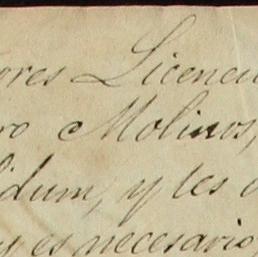 ores Licenci
ro Molinos,
lidum, y tes
y es necesario,